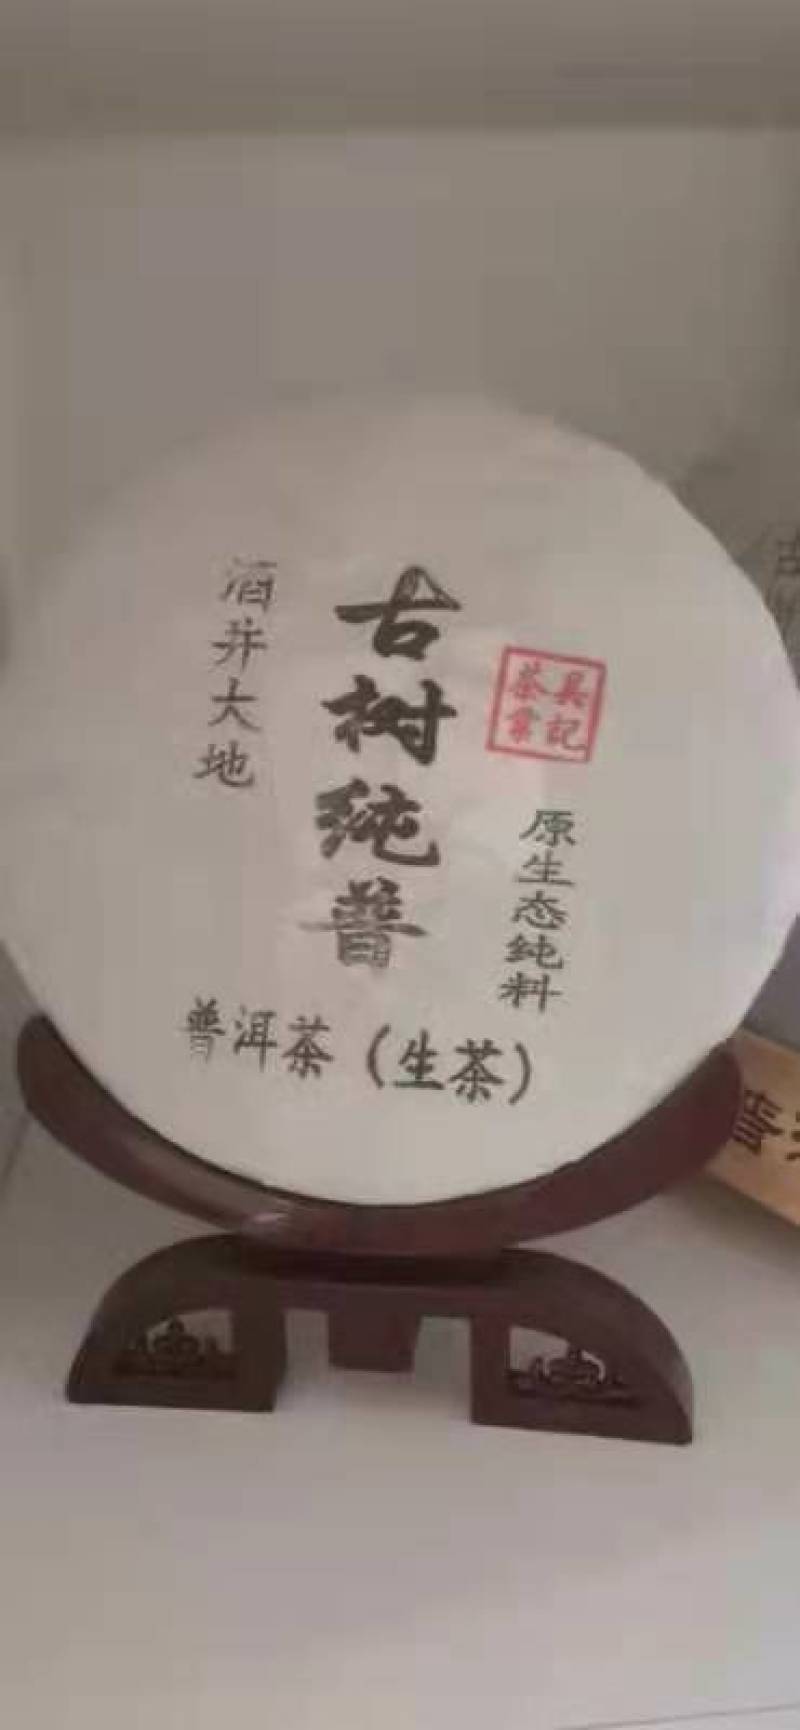 古树纯普
酒井大地
原生态纯料
普洱茶（生茶）
茶
記
古
普